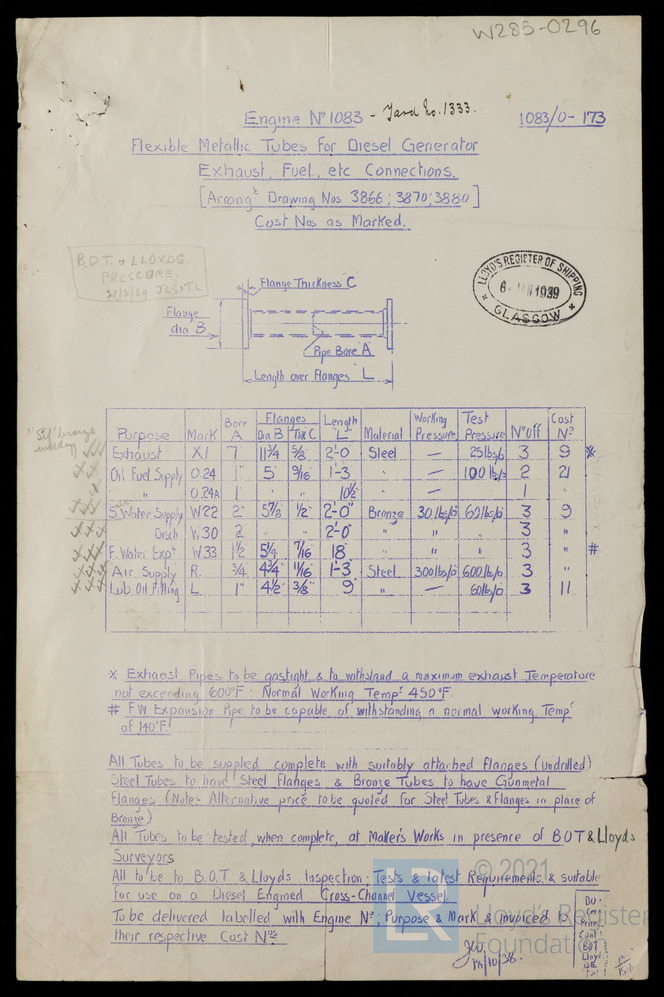 W285-0296
Engine Nº 1083 - Yard No. 1333.
1083/0-173
Flexible Metallic Tubes for Diesel Generator
Exhaust, Fuel, etc Connections.
[Arrangt Drawing Nos 3866; 3870; 3880]
Cost Nos as Marked.
B.O.T. & LLOYDS
PRESSURE.
LLOYD'S REGISTER OF SHIPPING
6 JAN 1939
GLASGOW
Flange Thickness C
Flange
dia B
Pipe Bore A
Length over flanges L
Purpose Mark Bore A Flanges Dia B Thk C Length "L" Material Working Pressure Test Pressure Nº off Cost Nº
Exhaust X1 7" 11¾ 5/8 2'-0 Steel — 25lbs/□ 3 9 *
Oil Fuel Supply O.24 1" 5" 9/16 1'-3 " — 100lbs/□ 2 21
" O.24A 1" " " 10½ " — " 1 "
S. Water Supply W22 2" 5⅞ ½" 2'-0" Bronze 30lbs/□ 60lbs/□ 3 9
" Disch W30 2 " " 2'-0" " " " 3 "
F. Water Expn W33 1½ 5¼ 7/16 18" " " " 3 " #
Air Supply R. ¾ 4¾ 11/16 1'-3 Steel 300lbs/□ 600lbs/□ 3 "
Lub. Oil Filling L 1" 4½ 3/8" 9" " — 60lbs/□ 3 11
* Exhaust Pipes to be gastight & to withstand a maximum exhaust Temperature
not exceeding 600°F: Normal Working Tempr 450°F.
# F W Expansion Pipe to be capable of withstanding a normal working Tempr
of 140°F.
All Tubes to be supplied complete with suitably attached flanges (undrilled)
Steel Tubes to have Steel Flanges & Bronze Tubes to have Gunmetal
Flanges (Note:- Alternative price to be quoted for Steel Tubes & Flanges in place of
Bronze)
All Tubes to be tested, when complete, at Maker's Works in presence of BOT & Lloyds
Surveyors
All to be to B.O.T & Lloyds Inspection; Tests & latest Requirements, & suitable
for use on a Diesel Engined Cross-Channel Vessel
To be delivered labelled with Engine Nº; Purpose & Mark & invoiced to
their respective Cost Nos
18/10/38.
BOT
Lloyd
© 2021
Lloyd's Register
Foundation
LR